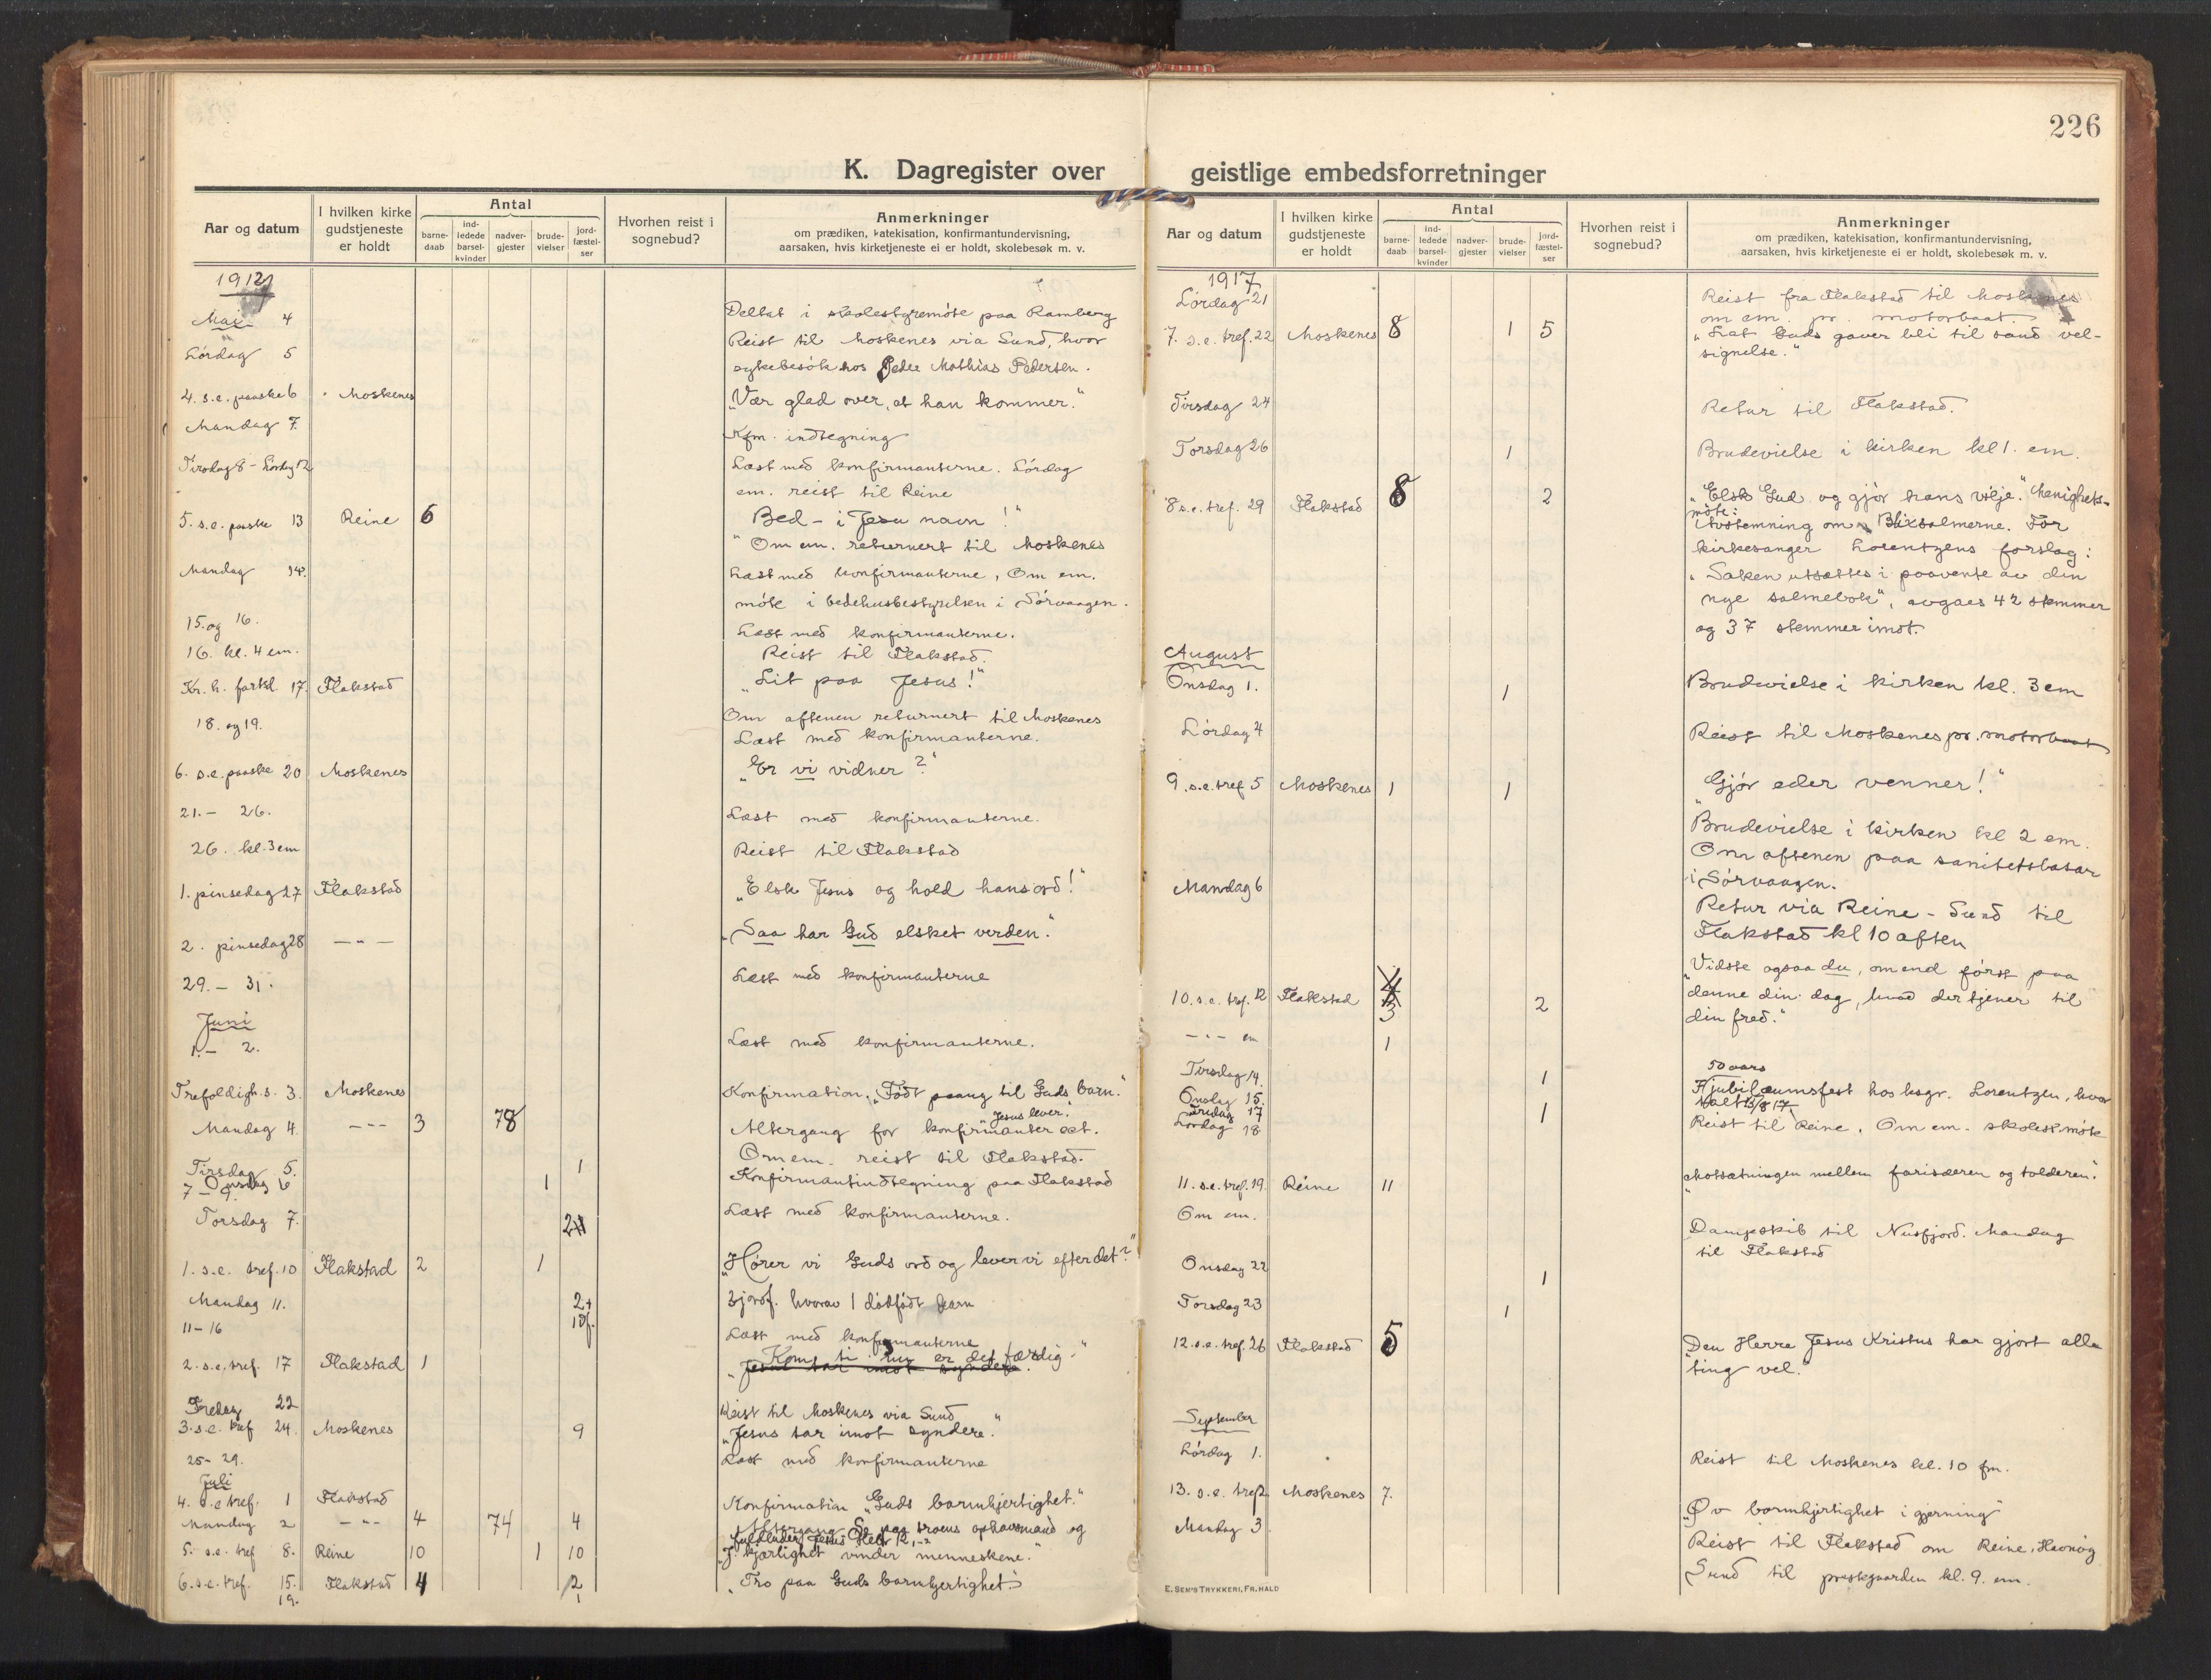 226
K. Dagregister over geistlige embedsforretninger
Aar og datum
I hvilken kirke gudstjeneste er holdt
Antal
barne-daab
ind-ledede barsel-kvinder
nadver-gjester
brude-vielser
jord-fæstel-ser
Hvorhen reist i sognebud?
Anmerkninger
om prædiken, katekisation, konfirmantundervisning,
aarsaken, hvis kirketjeneste ei er holdt, skolebesøk m. v.
1917
Mai 4 Deltat i skolestyremöte paa Ramberg
Lördag 5 Reist til Moskenes via Sund, hvor
sykebesök hos Peder Mathias Pedersen.
4. s.e. paaske 6 Moskenes „Vær glad over, at han kommer."
Mandag 7. Kfm. indtegning
Tirsdag 8 - Lördag 12 Læst med konfirmanterne. Lördag
em. reist til Reine
5. s.e. paaske 13 Reine 6 „Bed - i Jesu navn!"
Om em. returnert til Moskenes
Mandag 14. Læst med konfirmanterne, Om em.
möte i bedehusbestyrelsen i Sörvaagen.
15. og 16. Læst med konfirmanterne.
16. kl. 4 em. Reist til Flakstad.
Kr. h. farts d. 17. Flakstad „Lit paa Jesus!"
Om aftenen returnert til Moskenes
18. og 19. Læst med konfirmanterne.
6. s.e. paaske 20 Moskenes „Er vi vidner?"
21. - 26. Læst med konfirmanterne.
26. kl. 3 em Reist til Flakstad
1. pinsedag 27 Flakstad „Elsk Jesus og hold hans ord!"
2. pinsedag 28 - " - „Saa har Gud elsket verden."
29. - 31. Læst med konfirmanterne
Juni
1. - 2. Læst med konfirmanterne.
Trefoldigh. s. 3. Moskenes Konfirmation. „Födt paany til Guds barn."
Mandag 4. - " - 3 78 Altergang for konfirmanter „Jesus lever."
Om em. reist til Flakstad.
Tirsdag 5. 1
Onsdag 6 1 Konfirmantindtegning paa Flakstad
7 - 9. Læst med konfirmanterne.
Torsdag 7. 2
1. s.e. tref. 10 Flakstad 2 1 „Hører vi Guds ord og lever vi efter det?"
Mandag 11. 2+ 3 jordf. hvorav 1 dödfödt barn
1 df.
11 - 16 Læst med konfirmanterne
2. s.e. tref. 17 Flakstad 1 „Kom, ti nu er det færdig."
Jesus tar imot syndere.
Fredag 22 Reist til Moskenes via Sund
3. s.e. tref 24. Moskenes 9 „Jesus tar imot syndere."
25 - 29. Læst med konfirmanterne
Juli
4. s.e. tref. 1 Flakstad Konfirmation „Guds barmhjertighet."
Mandag 2 - " - 4 74 4 Altergang „Se paa troens ophavsmand og
fuldender Jesus Hebr 12, 1-2
5. s.e. tref 8. Reine 10 1 10 „Kjærlighet vinder menneskene."
6. s.e. tref. 15. Flakstad 4 2 „Tro paa Guds barmhjertighet"
19. 1
1917
Lördag 21 Reist fra Flakstad til Moskenes
om em. pr. motorbaat.
7. s.e. tref. 22 Moskenes 8 1 5 „Lat Guds gaver bli til sand vel-
signelse."
Tirsdag 24 Retur til Flakstad.
Torsdag 26 1 Brudevielse i kirken kl 1. em.
8 s.e. tref. 29 Flakstad 8 2 „Elsk Gud og gjör hans vilje." Menighets-
möte:
Avstemning om Blixsalmerne. For
kirkesanger Lorentzens forslag:
„Saken utsættes i paavente av den
nye salmebok", avgaes 42 stemmer
og 37 stemmer imot.
August
Onsdag 1. 1 Brudevielse i kirken kl. 3 em
Lördag 4 Reist til Moskenes pr. motorbaat
9. s.e. tref 5 Moskenes 1 1 „Gjör eder venner!"
Brudevielse i kirken kl 2 em.
Om aftenen paa sanitetsbasar
i Sörvaagen.
Mandag 6 Retur via Reine - Sund til
Flakstad kl 10 aften
10. s.e. tref. 12 Flakstad 3 2 „Vidste ogsaa du, om end först paa
denne din dag, hvad der tjener til
din fred."
- " - em 1
Tirsdag 14. 1
50 aars
Onsdag 15. jubilæumsfest hos ksgr. Lorentzen, hvor
Fredag 17 1
Lördag 18 Reist til Reine. Om em. skolest.möte
11. s.e. tref. 19. Reine 11 „Motsætningen mellem farisæeren og tolderen."
Om em. Dampskib til Nusfjord. Mandag
til Flakstad
Onsdag 22 1
Torsdag 23 1
12. s.e. tref. 26 Flakstad 5 „Den Herre Jesus Kristus har gjort alle
ting vel."
September
Lördag 1. Reist til Moskenes kl. 10 fm.
13. s.e. tref 2. Moskenes 7. „Øv barmhjertighet i gjerning"
Mandag 3. Reist til Flakstad om Reine, Havnög
Sund til prestgaarden kl. 9. em.
E. SEM'S TRYKKERI, FR.HALD